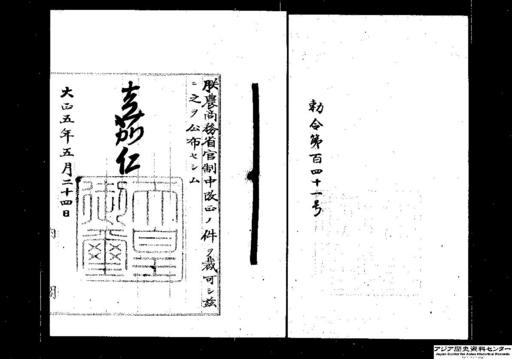 勅令第百四十一号
朕農商務省官制中改正ノ件ヲ裁可シ茲
ニ之ヲ公布セシム
嘉仁
大正五年五月二十四日
天皇御璽
内閣
アジア歴史資料センター
Japan Center for Asian Historical Records